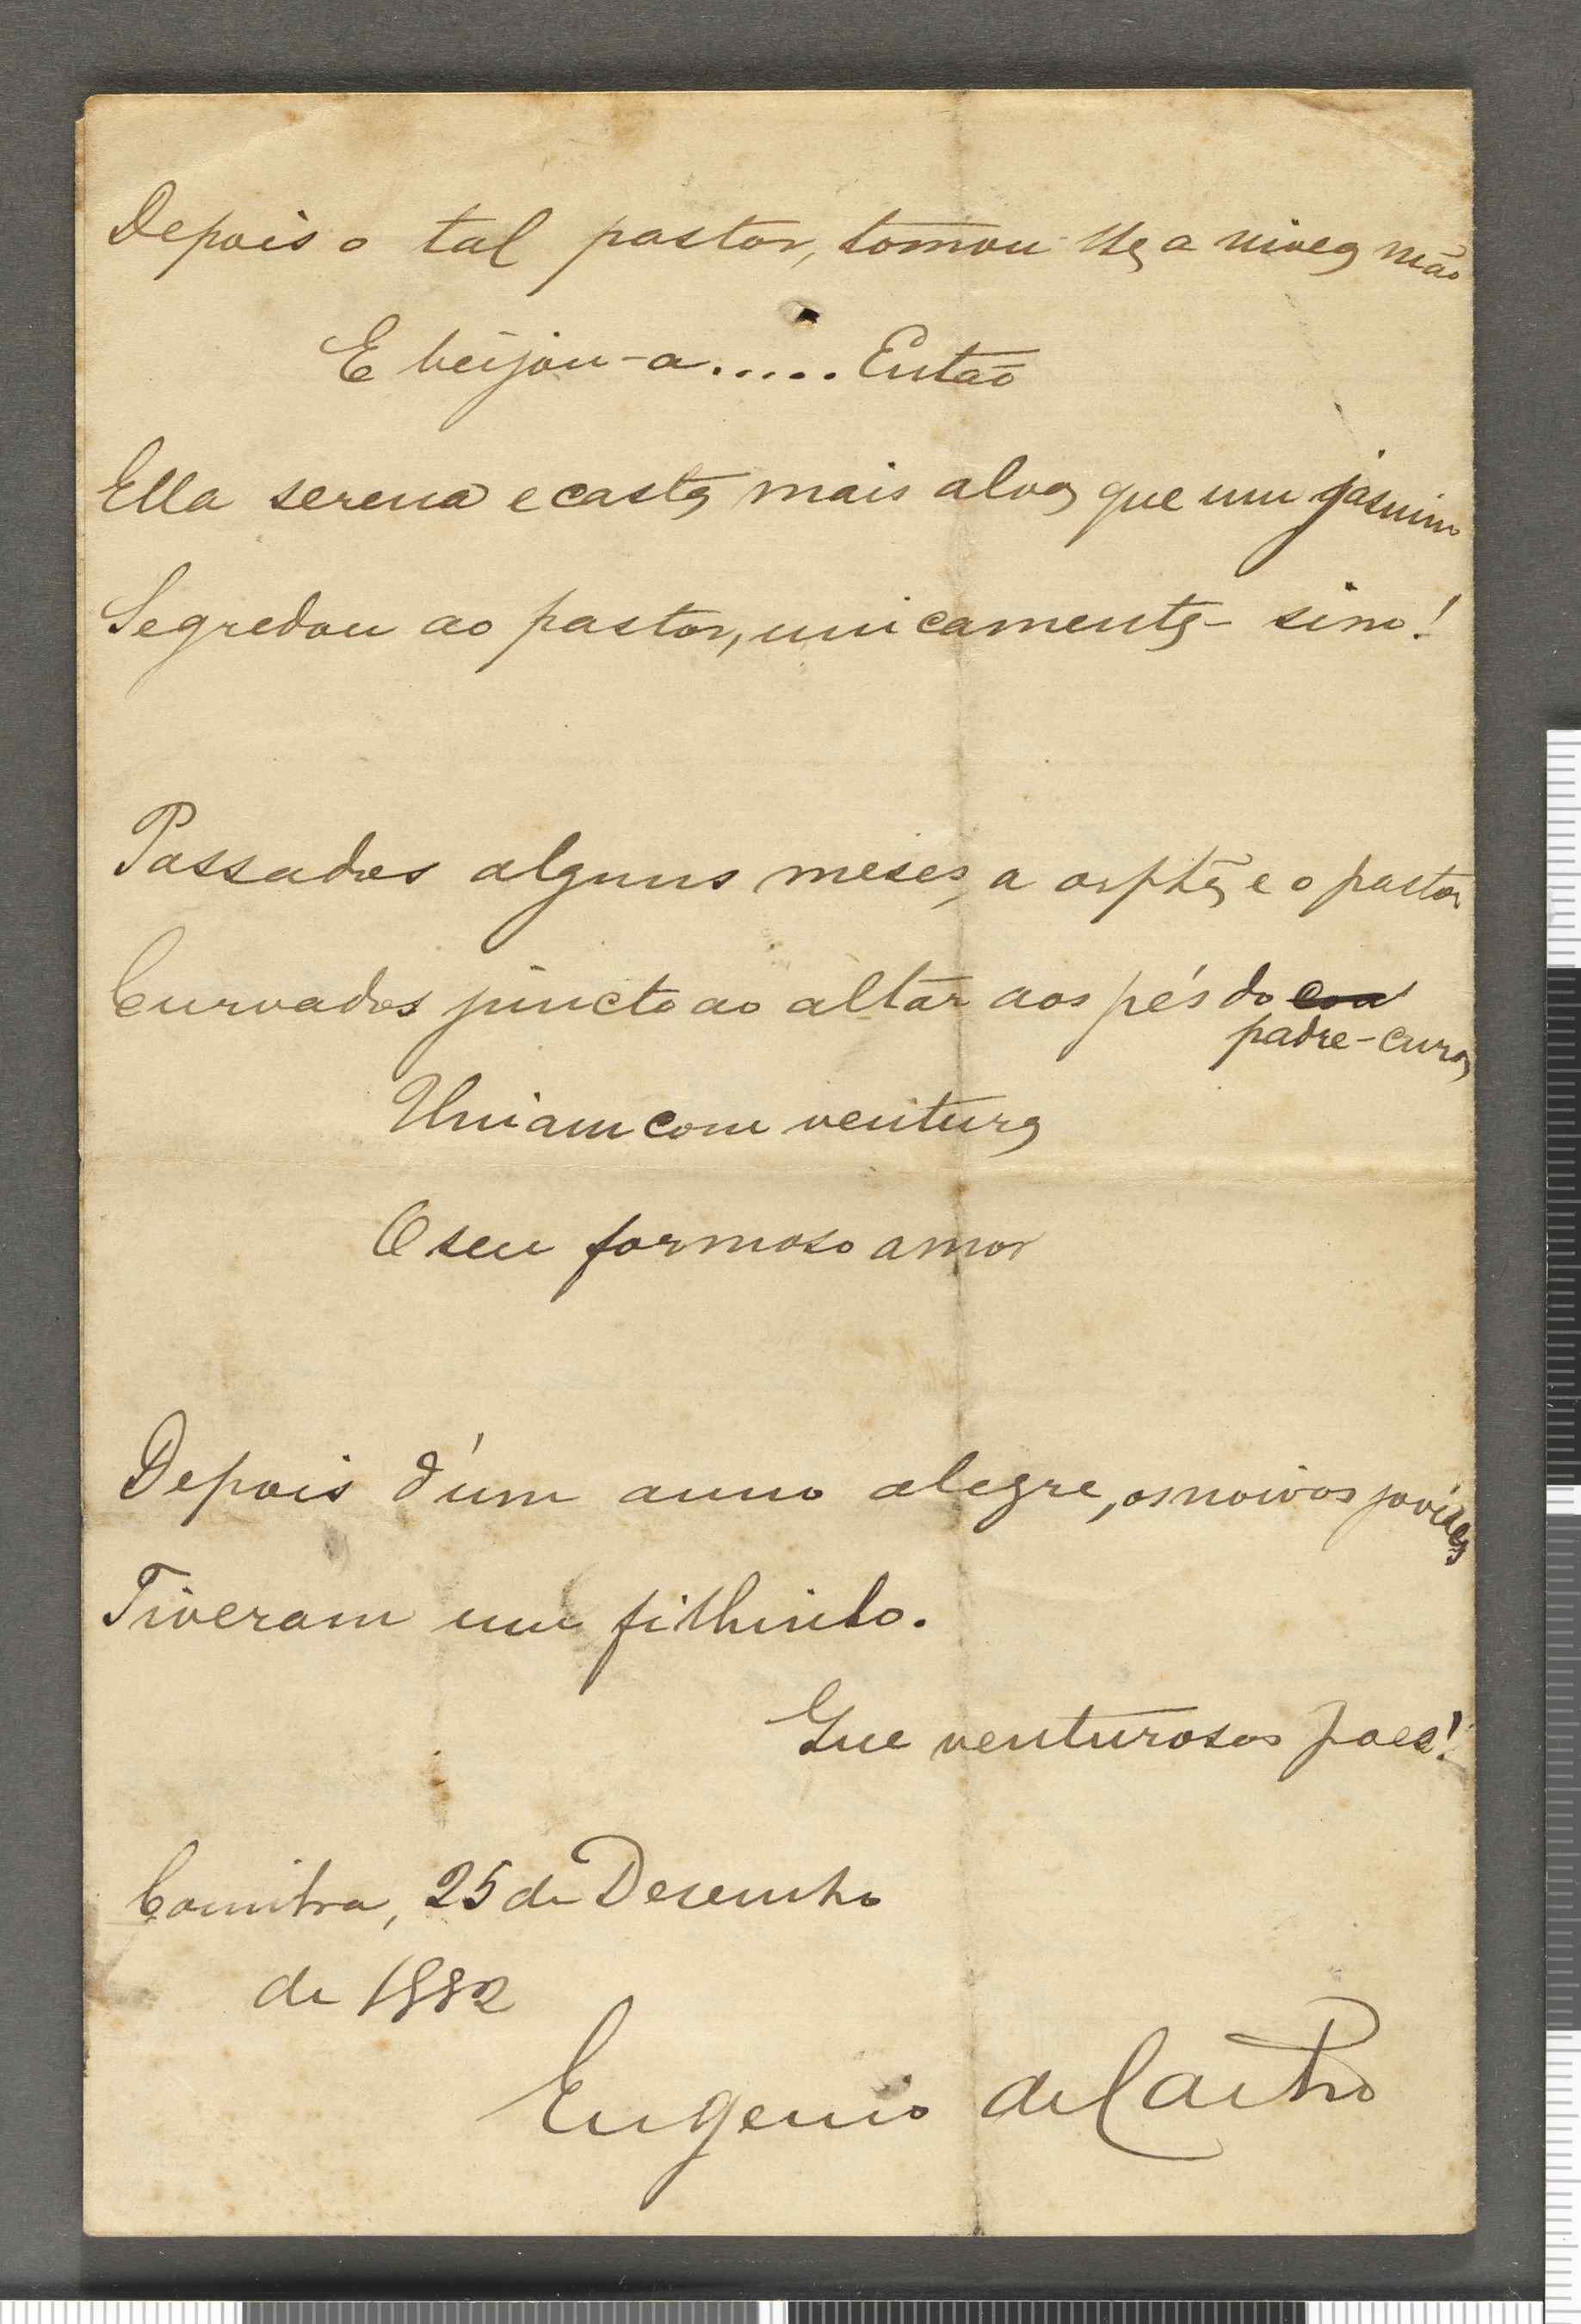 Depois o tal pastor, tomou-lhe a nivea mão
E beijou-a..... Então
Ella serena e casta, mais alva que um jasmim
Segredou ao pastor, unicamente - sim!
Passados alguns meses, a orphã e o pastor
Curvados juncto ao altar aos pés do
padre-cura
Uniam com ventura
O seu formoso amor
Depois d'um anno alegre, os noivos joviaes
Tiveram um filhinho.
Que venturosos paes!
Coimbra, 25 de Desembro
de 1882
Eugenio de Castro